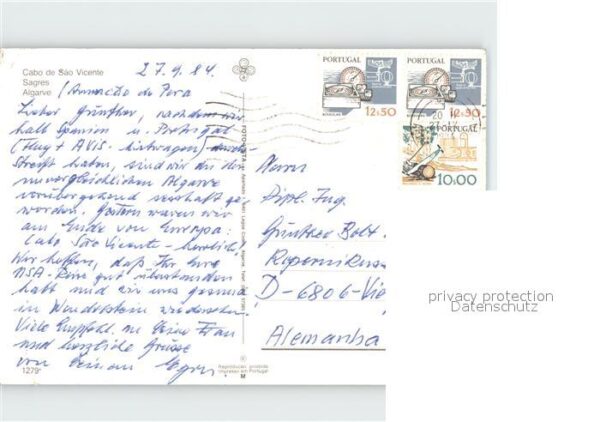 Cabo de São Vicente
Sagres
Algarve
27.9.84.
Lieber Günther, nachdem wir
halb Spanien u. Portugal
(Flug + AVIS-
haben, sind wir an der
unvergleichlichen Algarve
vorübergehend sesshaft ge-
worden. Gestern waren wir
am Ende von Europa:
Cabo São Vicente - herrlich!
Wir hoffen, daß Ihr Eure
USA-Reise gut überstanden
habt und wir uns gesund
in Wendelstein wiedersehen.
Viele Empfehl. an Deine Frau
und herzliche Grüsse
von Deinem
1279
PORTUGAL
12$50
PORTUGAL
12$50
PORTUGAL
10$00
Herrn
Dipl. Ing.
Günther Bolt
D-6806-Vie
Alemanha
Reprodução proibida
Impresso em Portugal
M
privacy protection
Datenschutz